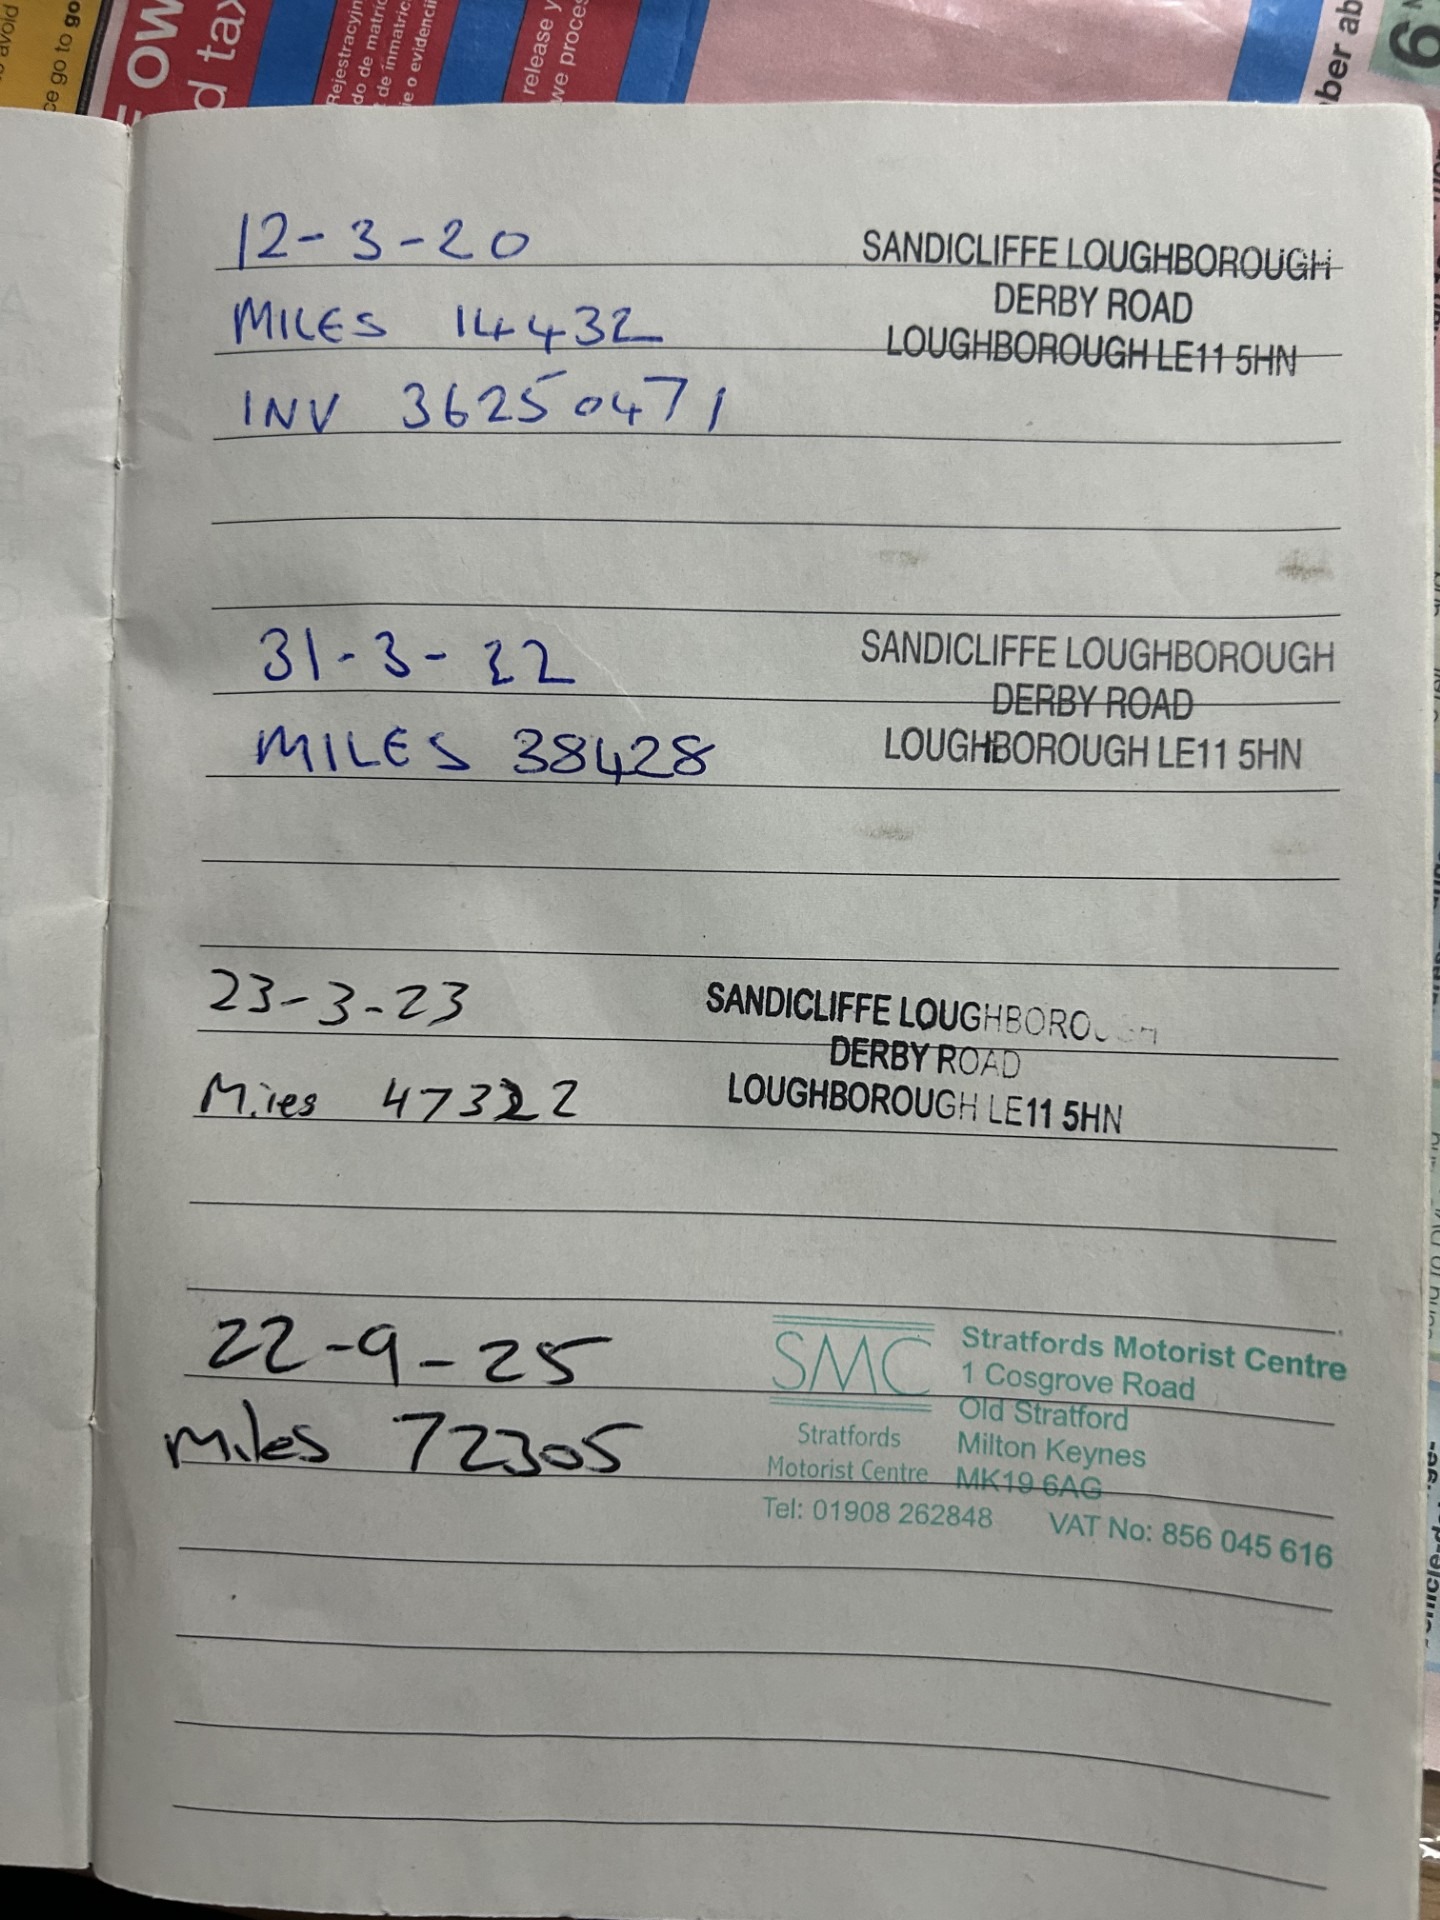 12-3-20
MILES 14432
INV 36250471
SANDICLIFFE LOUGHBOROUGH
DERBY ROAD
LOUGHBOROUGH LE11 5HN
31-3-22
MILES 38428
SANDICLIFFE LOUGHBOROUGH
DERBY ROAD
LOUGHBOROUGH LE11 5HN
23-3-23
Miles 47322
SANDICLIFFE LOUGHBOROUGH
DERBY ROAD
LOUGHBOROUGH LE11 5HN
22-9-25
miles 72305
SMC
Stratfords
Motorist Centre
Stratfords Motorist Centre
1 Cosgrove Road
Old Stratford
Milton Keynes
MK19 6AG
Tel: 01908 262848 VAT No: 856 045 616
avoid
ce go to go
OW
d tax
Rejestracyjn
do de matríc
de inmatric
ie o evidenci
release y
we proces
ber ab
6